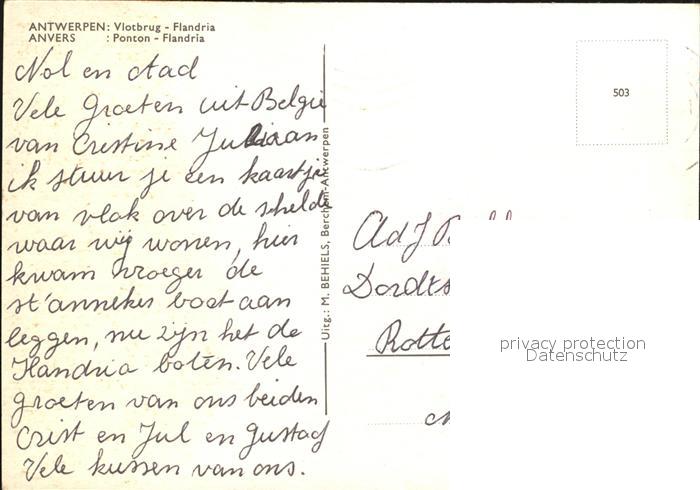 ANTWERPEN: Vlotbrug - Flandria
ANVERS : Ponton - Flandria
Nol en Aad
Vele Groeten uit Belgie
van Cristine Juliaan
ik stuur je een kaartje
van vlak over de schelde
waar wij wonen, hier
kwam vroeger de
st'annekes boot aan
leggen, nu zijn het de
Flandria boten. Vele
groeten van ons beiden
Crist en Jul en Gustaaf
Vele kussen van ons.
Uitg.: M. BEHIELS, Berchem-Antwerpen
503
Ad J
privacy protection
Datenschutz